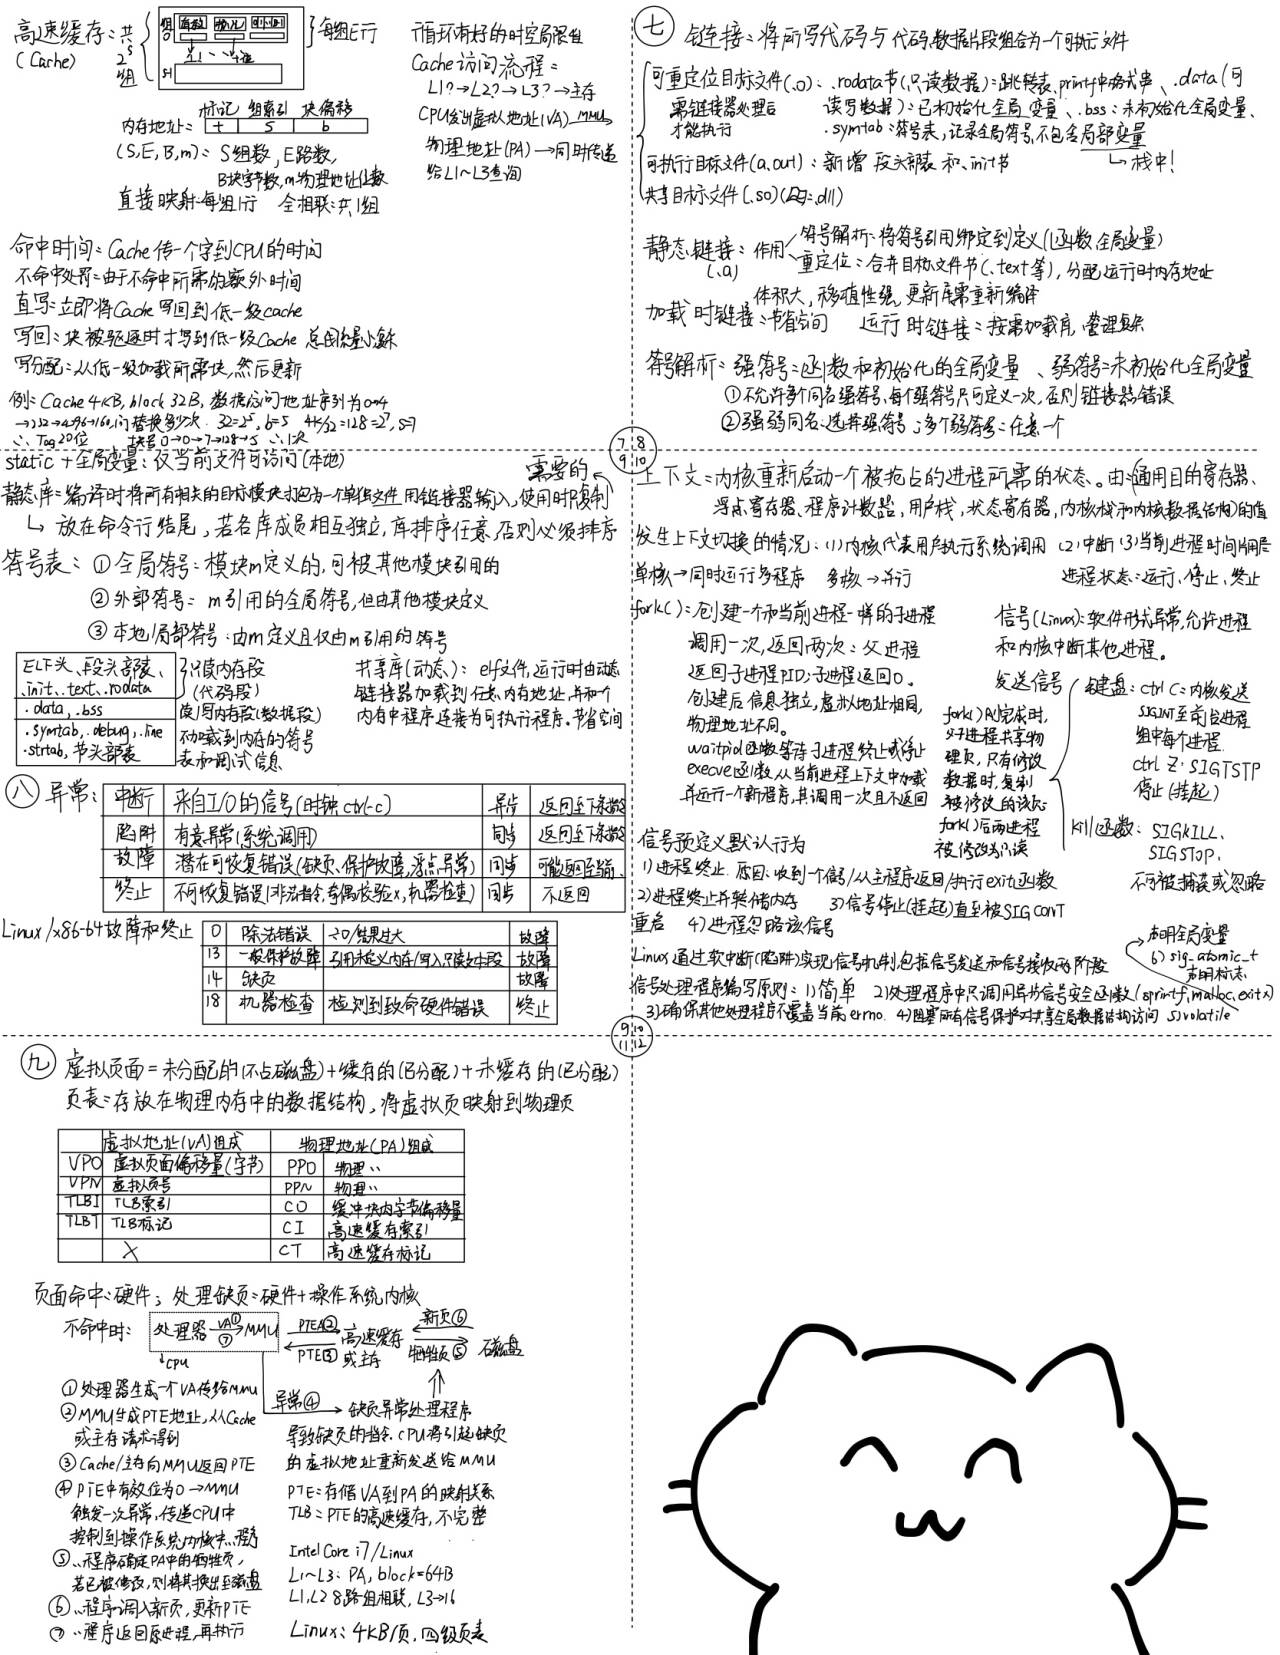 高速缓存：共2^s组
(Cache)
组0
有效 标记 块0 1…B-1
1位 t位
S-1
}每组E行
标记 组索引 块偏移
内存地址：t s b
(S,E,B,m)：S组数,E路数,
B块字节数,m物理地址位数
直接映射：每组1行 全相联：共1组
循环有好的时空局限性
Cache访问流程：
L1?→L2?→L3?→主存
CPU发出虚拟地址(VA) MMU→
物理地址(PA)→同时传送
给L1~L3查询
命中时间：Cache传一个字到CPU的时间
不命中处罚：由于不命中所需的额外时间
直写：立即将Cache写回到低一级cache
写回：块被驱逐时才写到低一级Cache 总线流量小,复杂
写分配：从低一级加载所需块,然后更新
例：Cache 4KB, block 32B, 数据访问地址序列为0→4
→232→4096→160,问替换多少次. 32=2^5, b=5 4K/32=128=2^7, s=7
∴ Tag 20位 块号0→0→7→128→5 ∴1次
七 链接：将所写代码与代码数据片段组合为一个可执行文件
可重定位目标文件(.o)：.rodata节(只读数据)：跳转表,printf中格式串、.data(可
需链接器处理后 读写数据)：已初始化全局变量、.bss：未初始化全局变量、
才能执行 .symtab：符号表,记录全局符号,不包含局部变量
可执行目标文件(a.out)：新增段头部表和.init节 ↳栈中!
共享目标文件(.so)(即.dll)
静态链接：作用 符号解析：将符号引用绑定到定义(函数,全局变量)
(.a) 重定位：合并目标文件节(.text等),分配运行时内存地址
体积大,移植性强,更新库需重新编译
加载时链接：节省空间 运行时链接：按需加载库,管理复杂
符号解析：强符号：函数和初始化的全局变量、弱符号：未初始化全局变量
①不允许多个同名强符号,每个强符号只可定义一次,否则链接器错误
②强弱同名：选择强符号；多个弱符号：任意一个
7 8
9 10
static+全局变量：仅当前文件可访问(本地)
需要的
静态库：编译时将所有相关的目标模块打包为一个单独文件用链接器输入,使用时只复制
↳ 放在命令行结尾,若各库成员相互独立,库排序任意,否则必须排序
符号表：①全局符号：模块m定义的,可被其他模块引用的
②外部符号：m引用的全局符号,但由其他模块定义
③本地/局部符号：由m定义且仅由m引用的符号
ELF头、段头部表、
.init、.text、.rodata
}只读内存段
(代码段)
.data,.bss
读/写内存段(数据段)
.symtab,.debug,.line
.strtab,节头部表
不加载到内存的符号
表和调试信息
共享库(动态)：elf文件,运行时由动态
链接器加载到任意内存地址,并和一个
内存中程序连接为可执行程序。节省空间
八 异常：
中断 来自I/O的信号(时钟ctrl-c) 异步 返回至下条指令
陷阱 有意异常(系统调用) 同步 返回至下条指令
故障 潜在可恢复错误(缺页、保护故障,浮点异常) 同步 可能返回至当前
终止 不可恢复错误(非法指令,奇偶校验x,机器检查) 同步 不返回
Linux/x86-64故障和终止
0 除法错误 ÷0/结果过大 故障
13 一般保护故障 引用未定义内存/写入只读文本段 故障
14 缺页 故障
18 机器检查 检测到致命硬件错误 终止
上下文：内核重新启动一个被抢占的进程所需的状态。由：通用目的寄存器、
浮点寄存器、程序计数器,用户栈,状态寄存器,内核栈和内核数据结构的值
发生上下文切换的情况：(1)内核代表用户执行系统调用 (2)中断 (3)当前进程时间片用尽
单核→同时运行多程序 多核→并行 进程状态：运行、停止、终止
fork()：创建一个和当前进程一样的子进程
调用一次,返回两次：父进程
返回子进程PID;子进程返回0。
创建后信息独立,虚拟地址相同,
物理地址不同。
waitpid函数等待子进程终止或停止
execve函数,从当前进程上下文中加载
并运行一个新程序,其调用一次且不返回
fork()刚完成时,
父子进程共享物
理页,只有修改
数据时,复制
被修改的该页
fork()后两进程
被修改为只读
信号(Linux)：软件形式异常,允许进程
和内核中断其他进程。
发送信号
键盘：ctrl C：内核发送
SIGINT至前台进程
组中每个进程.
ctrl Z：SIGTSTP
停止(挂起)
kill函数：SIGKILL、
SIGSTOP,
不可被捕获或忽略
信号预定义默认行为
1)进程终止. 原因：收到一个信号/从主程序返回/执行exit函数
2)进程终止并转储内存 3)信号停止(挂起)直至被SIGCONT
重启 4)进程忽略该信号
Linux通过软中断(陷阱)实现信号机制,包括信号发送和信号接收两阶段
信号处理程序编写原则：1)简单 2)处理程序中只调用异步信号安全函数(sprintf,malloc,exit x)
3)确保其他处理程序不覆盖当前errno. 4)阻塞所有信号保护对共享全局数据结构访问 5)volatile
声明全局变量
6) sig_atomic_t
声明标志
9 10
11 12
九 虚拟页面=未分配的(不占磁盘)+缓存的(已分配)+未缓存的(已分配)
页表：存放在物理内存中的数据结构,将虚拟页映射到物理页
虚拟地址(VA)组成 物理地址(PA)组成
VPO 虚拟页面偏移量(字节) PPO 物理〃
VPN 虚拟页号 PPN 物理〃
TLBI TLB索引 CO 缓冲块内字节偏移量
TLBT TLB标记 CI 高速缓存索引
X CT 高速缓存标记
页面命中：硬件；处理缺页：硬件+操作系统内核
不命中时：
处理器 VA① ⑦ MMU
↓CPU
PTEA②
PTE③
高速缓存
或主存
新页⑥
牺牲页⑤
磁盘
异常④
缺页异常处理程序
①处理器生成一个VA传给MMU
②MMU生成PTE地址,从Cache
或主存请求得到
③Cache/主存向MMU返回PTE
④PTE中有效位为0→MMU
触发一次异常,传递CPU中
控制到操作系统内核中..程序
⑤..程序确定PA中的牺牲页,
若已被修改,则将其换出至磁盘
⑥..程序调入新页,更新PTE
⑦..程序返回原进程,再执行
导致缺页的指令. CPU将引起缺页
的虚拟地址重新发送给MMU
PTE：存储VA到PA的映射关系
TLB：PTE的高速缓存,不完整
Intel Core i7/Linux
L1~L3：PA,block=64B
L1,L2 8路组相联,L3→16
Linux：4KB/页,四级页表